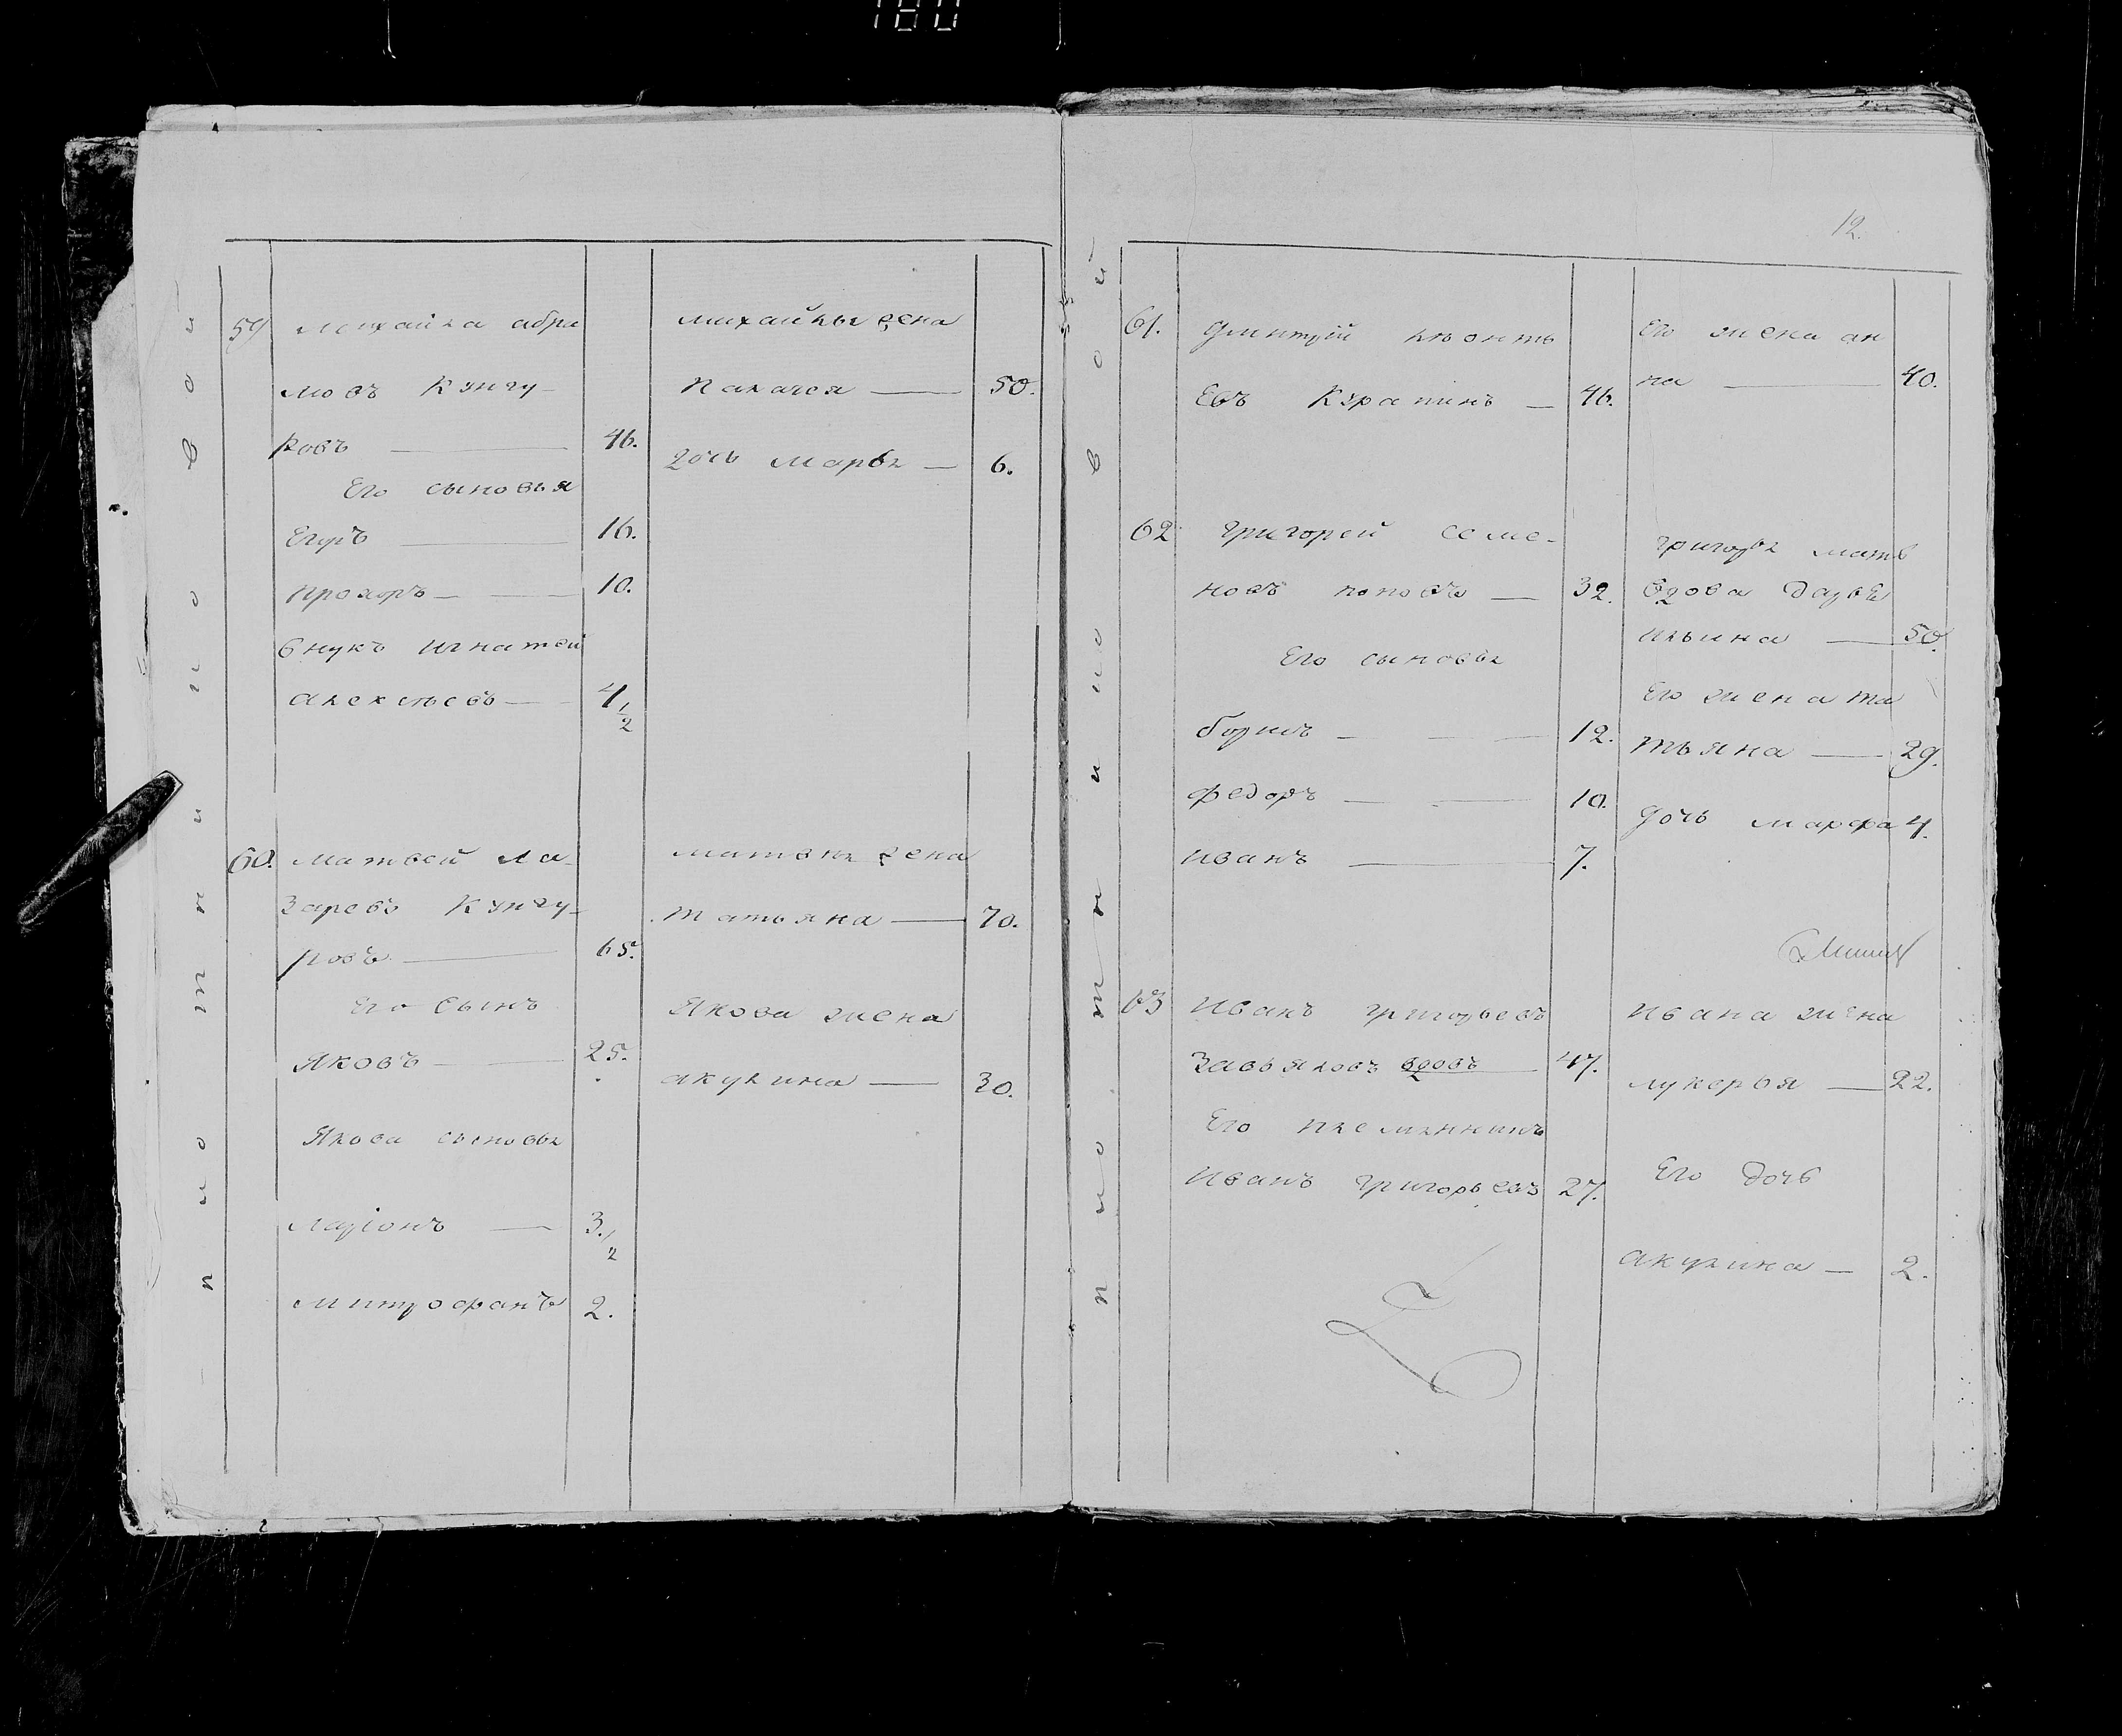 180
12.
59 михайла абра
мовъ Кунгу-
ровъ — 46.
Его сыновья
Егоръ — 16.
прохоръ — 10.
внукъ игнатей
алексеевъ — 4 1/2
михайлы жена
палагея — 50.
дочь марья — 6.
60. матвей ла-
заревъ Кунгу-
ровъ — 65.
Его сынъ
Яковъ — 25.
Якова сыновья
ларіонъ — 3. 1/2
митрофанъ 2.
матвея жена
татьяна — 70.
Якова жена
акулина — 30.
61. дмитрій леонть
Евъ Курапинъ — 46.
Его жена ан
на — 40.
62 григорей семе-
новъ поповъ — 32.
Его сыновья
борисъ — 12.
федоръ — 10.
иванъ — 7.
григорья мать
вдова дарья
ильина — 50.
Его жена та
тьяна — 29.
дочь марфа 4.
63 иванъ григорьевъ
завьяловъ вдовъ 47.
Его племянникъ
иванъ григорьевъ 27.
ивана жена
лукерья — 22.
Его дочь
акулина — 2.